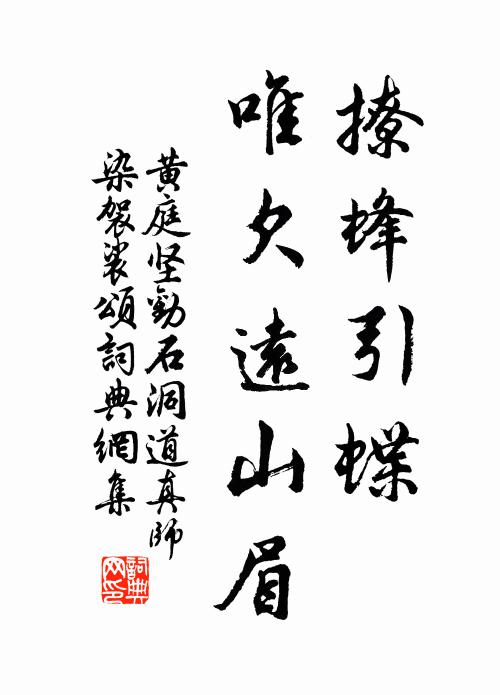 撩蜂引蝶
唯欠遠山眉
黄庭坚勸石洞道真師
染袈裟頌詞典網集
詞典
网印